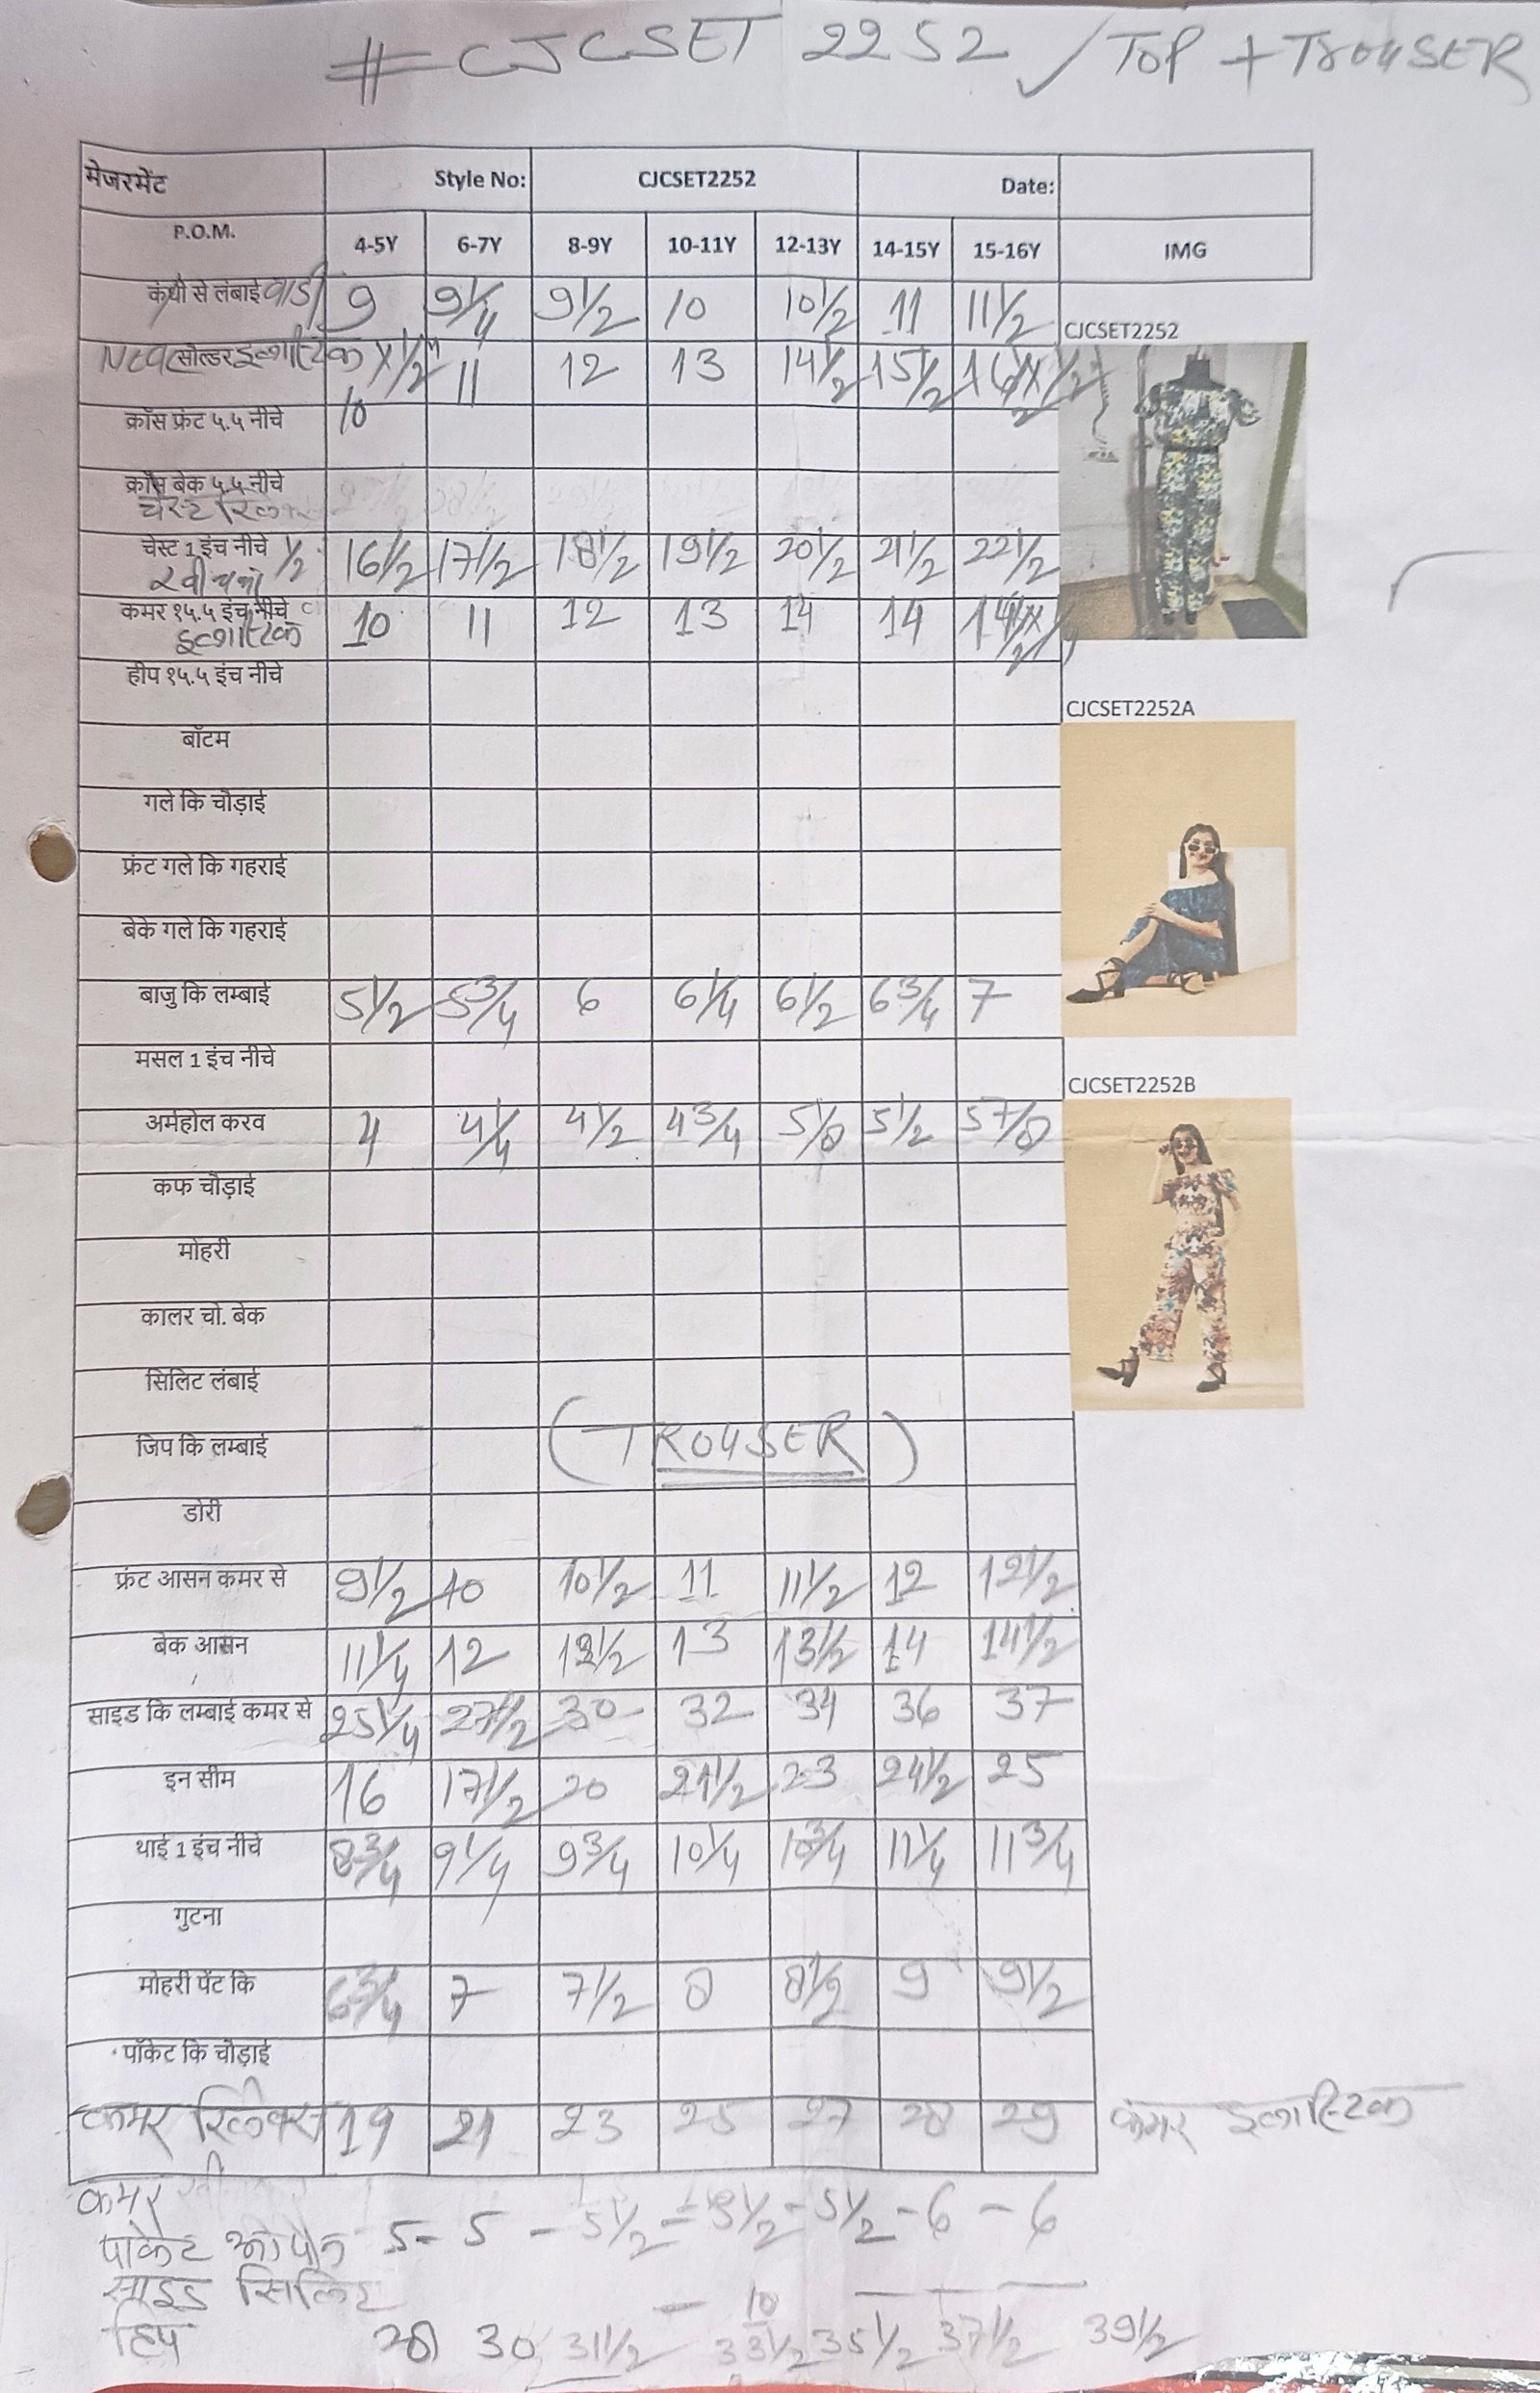 # CJCSET 2252 / TOP + TROUSER
मेजरमेंट Style No: CJCSET2252 Date:
P.O.M. 4-5Y 6-7Y 8-9Y 10-11Y 12-13Y 14-15Y 15-16Y IMG
कंधी से लंबाई 9 9 1/4 9 1/2 10 10 1/2 11 11 1/2
CJCSET2252
सोल्डर इलास्टिक x 1/2" 11 12 13 14 1/2 15 1/2
क्रॉस फ्रंट ५.५ नीचे 10
क्रॉस बेक ५.५ नीचे
चेस्ट
चेस्ट 1 इंच नीचे 1/2 16 1/2 17 1/2 18 1/2 19 1/2 20 1/2 21 1/2 22 1/2
कमर १५.५ इंच नीचे 10 11 12 13 14 14
इलास्टिक
हीप १५.५ इंच नीचे
CJCSET2252A
बॉटम
गले कि चौड़ाई
फ्रंट गले कि गहराई
बेके गले कि गहराई
बाजु कि लम्बाई 5 1/2 5 3/4 6 6 1/4 6 1/2 6 3/4 7
मसल 1 इंच नीचे
CJCSET2252B
अर्महोल करव 4 4 1/4 4 1/2 4 3/4 5 1/8 5 1/2 5 7/8
कफ चौड़ाई
मोहरी
कालर चो. बेक
सिलिट लंबाई
(TROUSER)
जिप कि लम्बाई
डोरी
फ्रंट आसन कमर से 9 1/2 10 10 1/2 11 11 1/2 12 12 1/2
बेक आसन 11 1/4 12 12 1/2 13 13 1/2 14 14 1/2
साइड कि लम्बाई कमर से 25 1/4 27 1/2 30 32 34 36 37
इन सीम 16 17 1/2 20 21 1/2 23 24 1/2 25
थाई 1 इंच नीचे 8 3/4 9 1/4 9 3/4 10 1/4 10 3/4 11 1/4 11 3/4
गुटना
मोहरी पेंट कि 6 3/4 7 7 1/2 8 8 1/2 9 9 1/2
पॉकेट कि चौड़ाई
कमर रिलेक्स 19 21 23 25 27 28 29 कमर इलास्टिक
कमर
पाकेट ओपन 5 - 5 - 5 1/2 - 5 1/2 - 5 1/2 - 6 - 6
साइड सिलिट
10
हिप 28 30 31 1/2 33 1/2 35 1/2 37 1/2 39 1/2